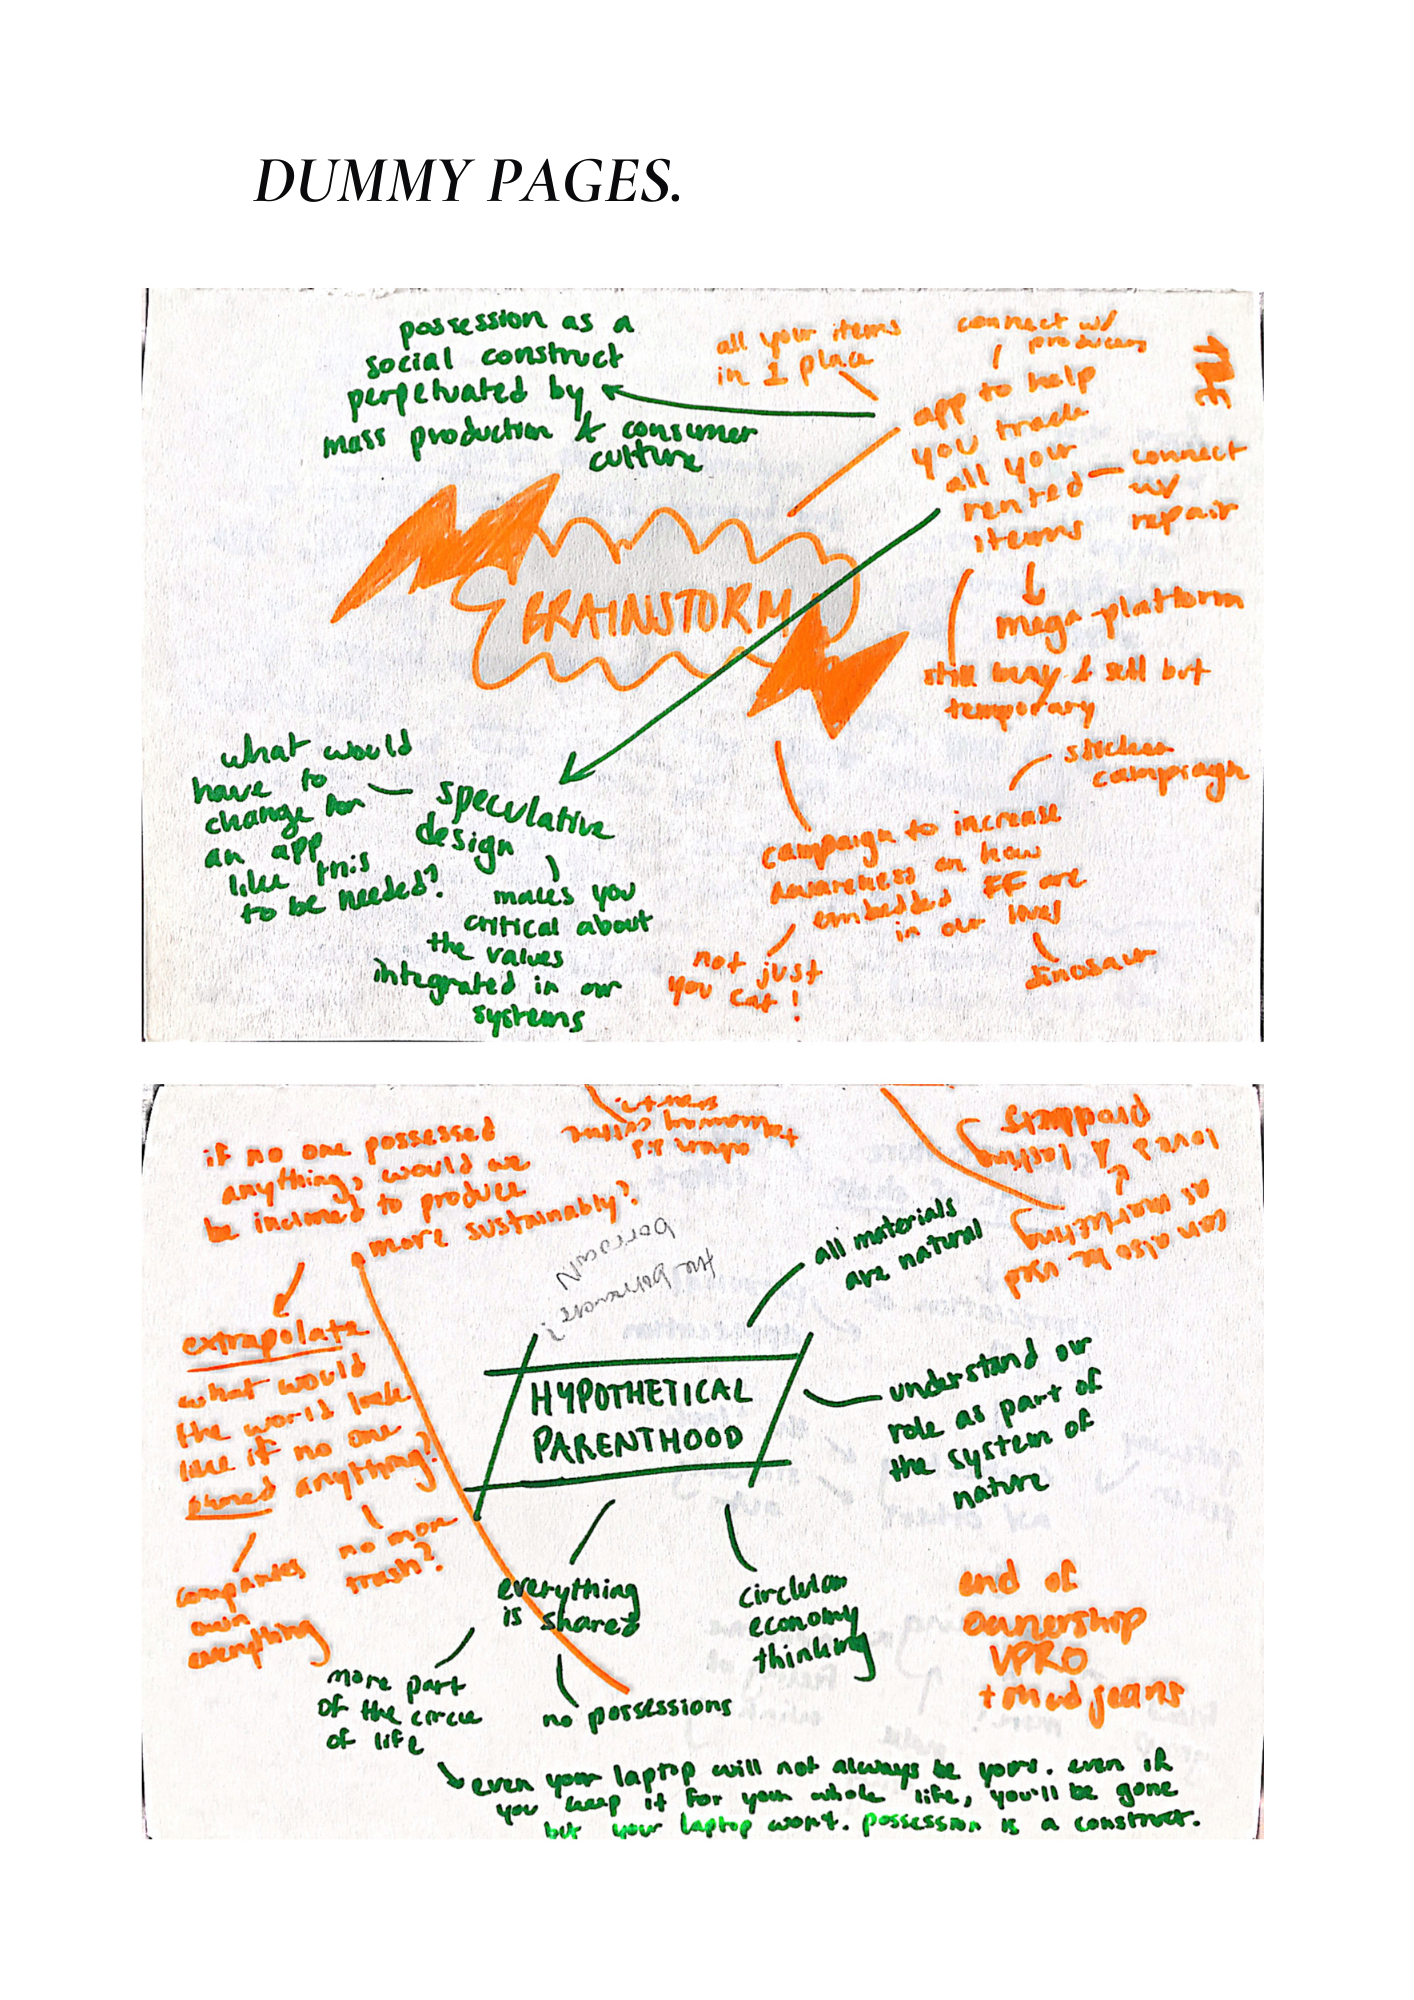 DUMMY PAGES.
possession as a
social construct
perpetuated by
mass production & consumer
culture
all your items
in 1 place
connect w/
producers
app to help
you track
all your
rented
items
connect
w/
repair
mega-platform
still buy & sell but
temporary
BRAINSTORM
what would
have to
change for
an app
like this
to be needed?
speculative
design
makes you
critical about
the values
integrated in our
systems
sticker
campaign
campaign to increase
awareness on how
embedded FF are
in our lives
not just
you eat!
dinosaur
if no one possessed
anything, would we
be inclined to produce
more sustainably?
extrapolate
what would
the world look
like if no one
owned anything?
companies
own
everything
no more
trash?
borrow
the borrowers?
can also be used
as marketing
all materials
are natural
HYPOTHETICAL
PARENTHOOD
understand our
role as part of
the system of
nature
everything
is shared
circular
economy
thinking
more part
of the circle
of life
no possessions
end of
ownership
VPRO
+ mud jeans
even your laptop will not always be yours. even if
you keep it for your whole life, you'll be gone
but your laptop won't. possession is a construct.